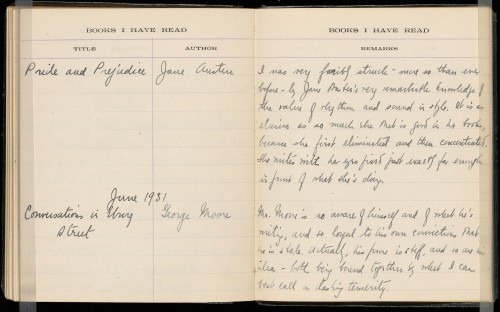 BOOKS I HAVE READ
TITLE AUTHOR
Pride and Prejudice Jane Austen
June 1931
Conversations in Ebury George Moore
Street
BOOKS I HAVE READ
REMARKS
I was very forcibly struck - more so than ever
before - by Jane Austen's very remarkable knowledge of
the value of rhythm and sound in style. It is as
elusive as so much else that is good in her books,
because she first eliminated and then concentrated.
She writes with her eyes fixed just exactly far enough
in front of what she's doing.
Mr. Moore is so aware of himself and of what he's
writing, and so loyal to his own convictions that
he is stale. Actually, his prose is stiff, and so are his
ideas - both being bound together by what I can
best call a dashing temerity.